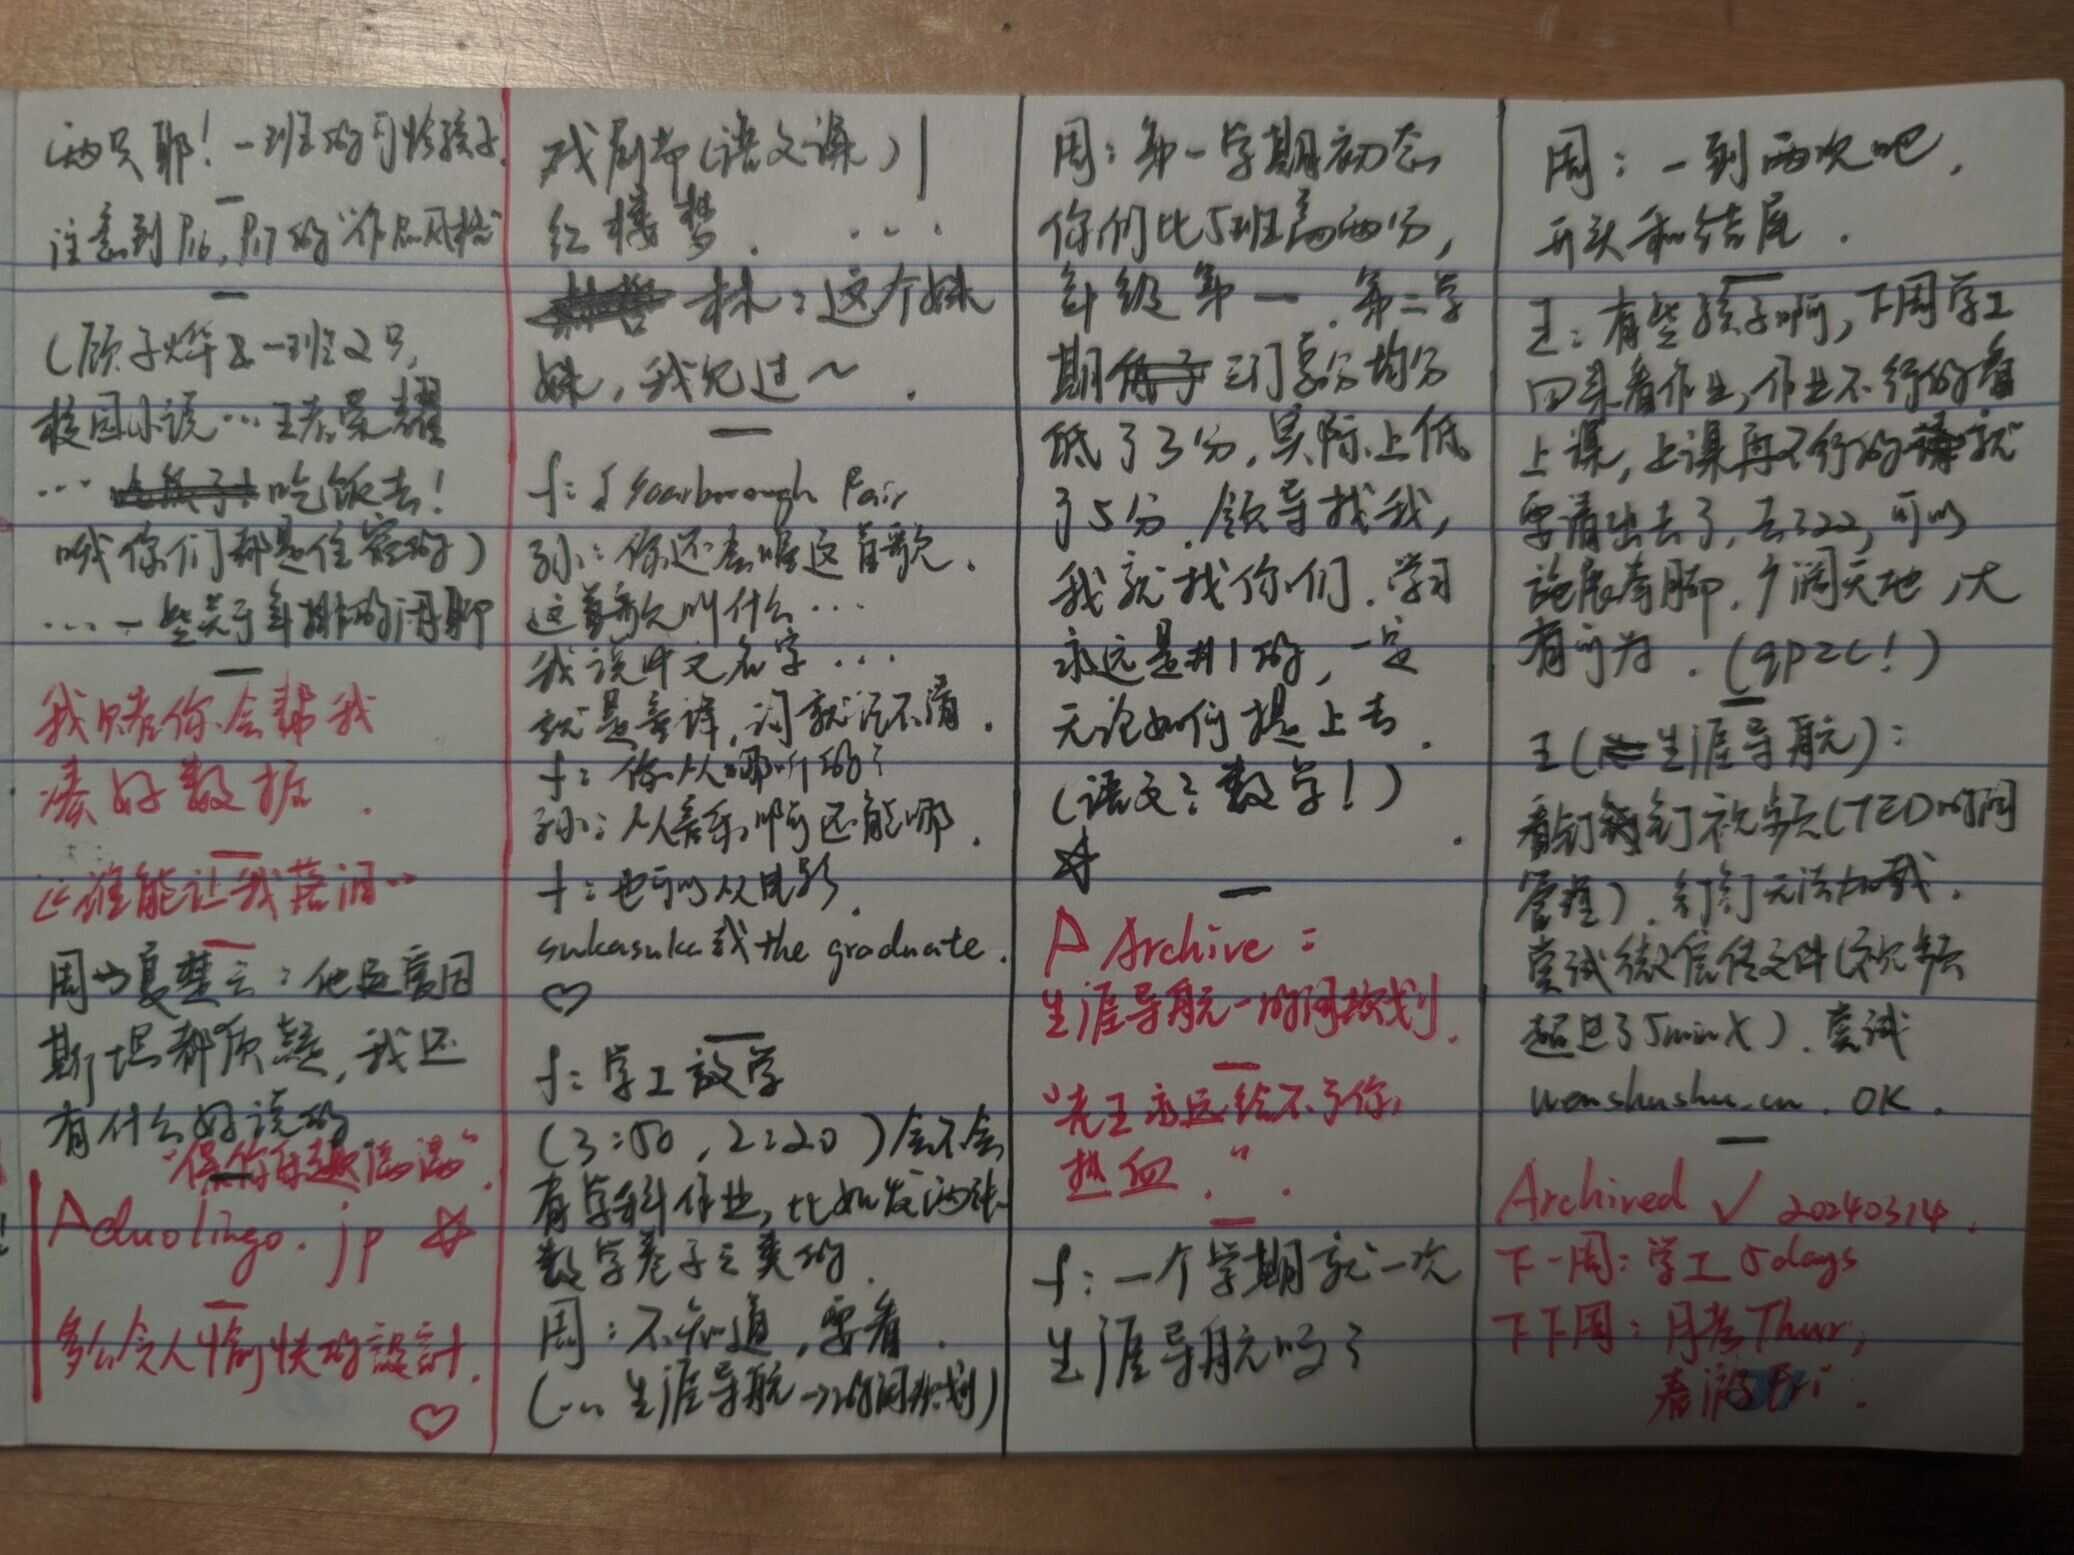 两只耶！一班的可怜孩子.
注意到P16, P17的“作品风格”
(顾子烨&一班2只,
校园小说…王者荣耀
… 吃饭去！
哦你们都是住宿的)
… 一些关于年排的闲聊
我只差你会帮我
凑好数据.
“谁能让我落泪…
周→夏楚云: 他连爱因
斯坦都质疑, 我还
有什么好说的
“保你
Aduolingo.jp ☆
多么令人愉快的設計.
♡
戏剧节(语文课)
红楼梦. ...
林: 这个妹
妹, 我见过~.
f: Scarborough Fair
孙: 你还会唱这首歌.
这首歌叫什么…
我说中文名字…
就是音译, 词就记不清.
f: 你从哪听的?
孙: 从音乐啊还能哪.
f: 也可以从电影.
sukasuka或the graduate.
♡
f: 学工放学
(3:50, 2:20)会不会
有学科作业, 比如发两张
数学卷子之类的.
周: 不知道, 要看.
(... 生涯导航→时间规划)
周: 第一学期初态
你们比5班高两分,
年级第一. 第二学
期 三门总分均分
低了3分, 实际上低
了5分. 领导找我,
我就找你们. 学习
永远是#1的, 一定
无论如何提上去.
(语文? 数学!)
☆
P Archive:
生涯导航—时间规划.
“老王永远给不了你,
热血.”.
f: 一个学期就一次
生涯导航吗?
周: 一到两次吧,
开头和结尾.
王: 有些孩子啊, 下周学工
回来看作业, 作业不行的看
上课, 上课再不行的就
要请出去了, 去322, 可以
施展拳脚. 广阔天地, 大
有可为. (qpzc!)
王(生涯导航):
看钉钉视频(TED时间
管理). 钉钉无法加载.
尝试微信传文件(视频
超过了5min X). 尝试
wenshushu.cn. OK.
Archived ✓ 20240314.
下一周: 学工 5days
下下周: 月考Thur,
春游Fri.